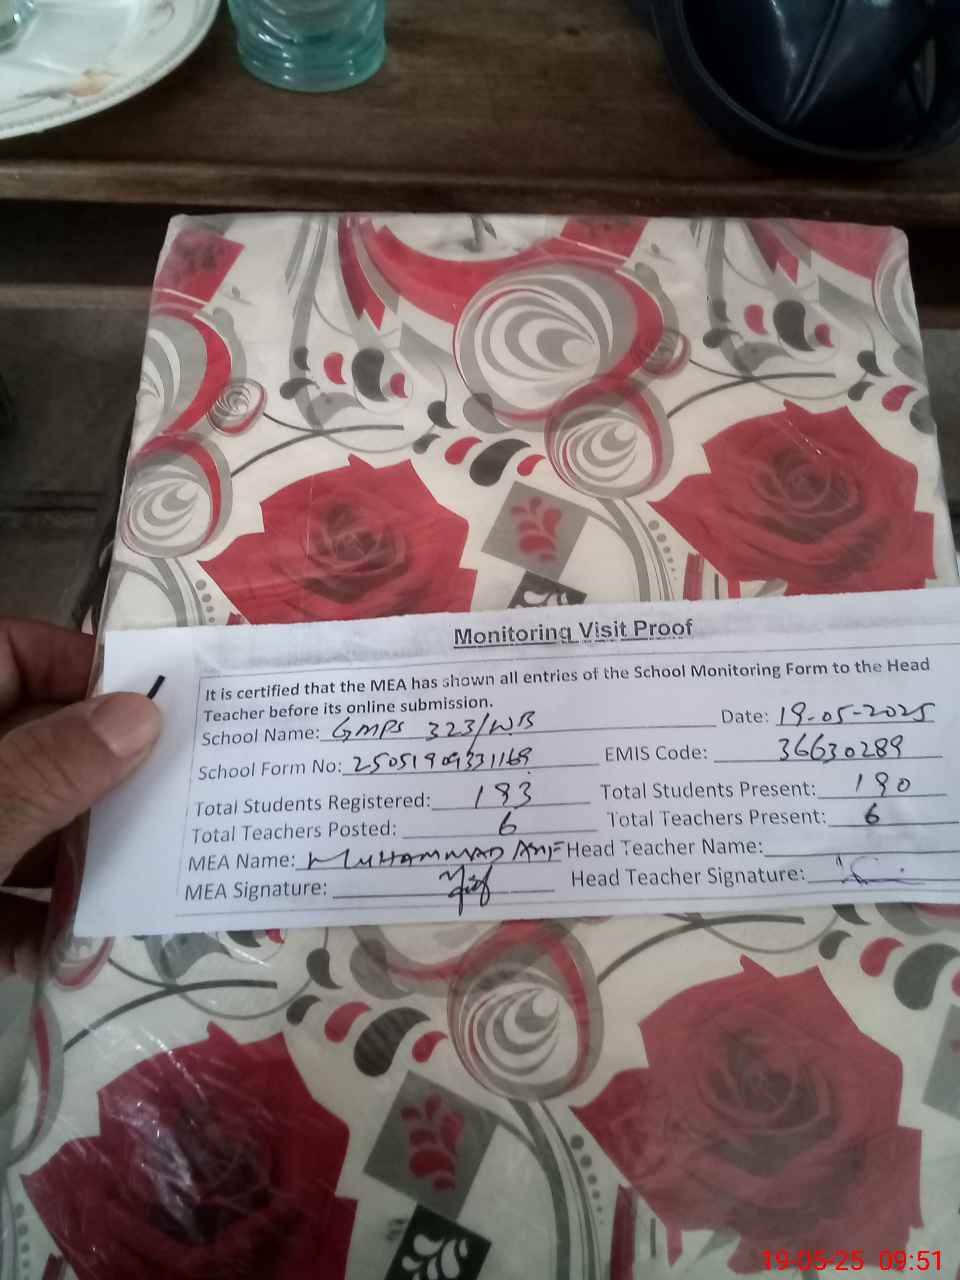 Monitoring Visit Proof
It is certified that the MEA has shown all entries of the School Monitoring Form to the Head
Teacher before its online submission.
School Name: GMPS 323/WB Date: 19-05-2025
School Form No: 25051909331169 EMIS Code: 36630289
Total Students Registered: 193 Total Students Present: 190
Total Teachers Posted: 6 Total Teachers Present: 6
MEA Name: MUHAMMAD Head Teacher Name:
MEA Signature: Head Teacher Signature:
19-05-25 09:51